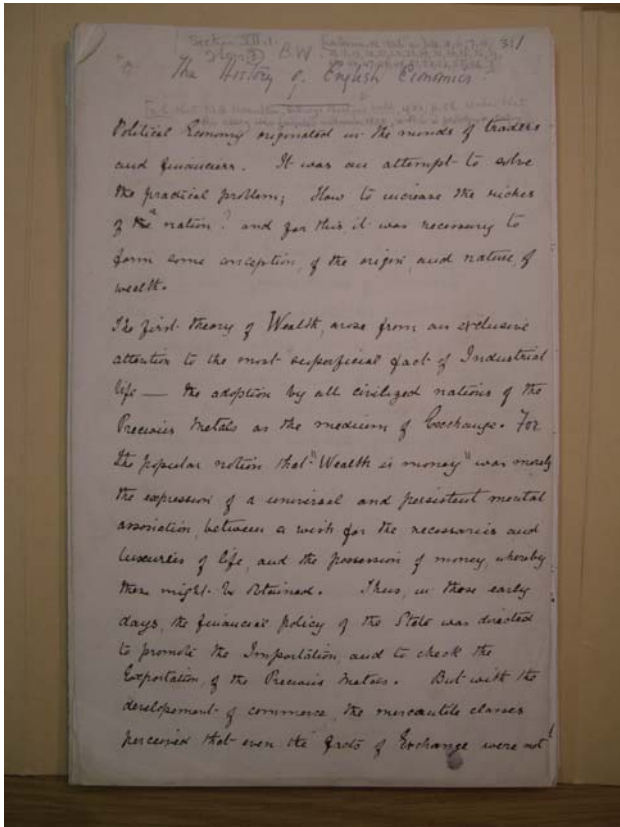 Section VII.1.
Item ③ B.W. 31/
The History of English Economics
Political Economy originated in the minds of traders
and financiers. It was an attempt to solve
the practical problem; How to increase the riches
of the nation? and for this it was necessary to
form some conception, of the origin, and nature, of
wealth.
The first theory of Wealth, arose from an exclusive
attention to the most superficial fact of Industrial
life — the adoption by all civilized nations of the
Precious Metals as the medium of Exchange. For
the popular notion that "Wealth is money" was merely
the expression of a universal and persistent mental
association, between a wish for the necessaries and
luxuries of life, and the possession of money, whereby
these might be obtained. Thus, in those early
days, the financial policy of the State was directed
to promote the Importation, and to check the
Exportation, of the Precious Metals. But with the
developement of commerce, the mercantile classes
perceived that even the facts of Exchange were not